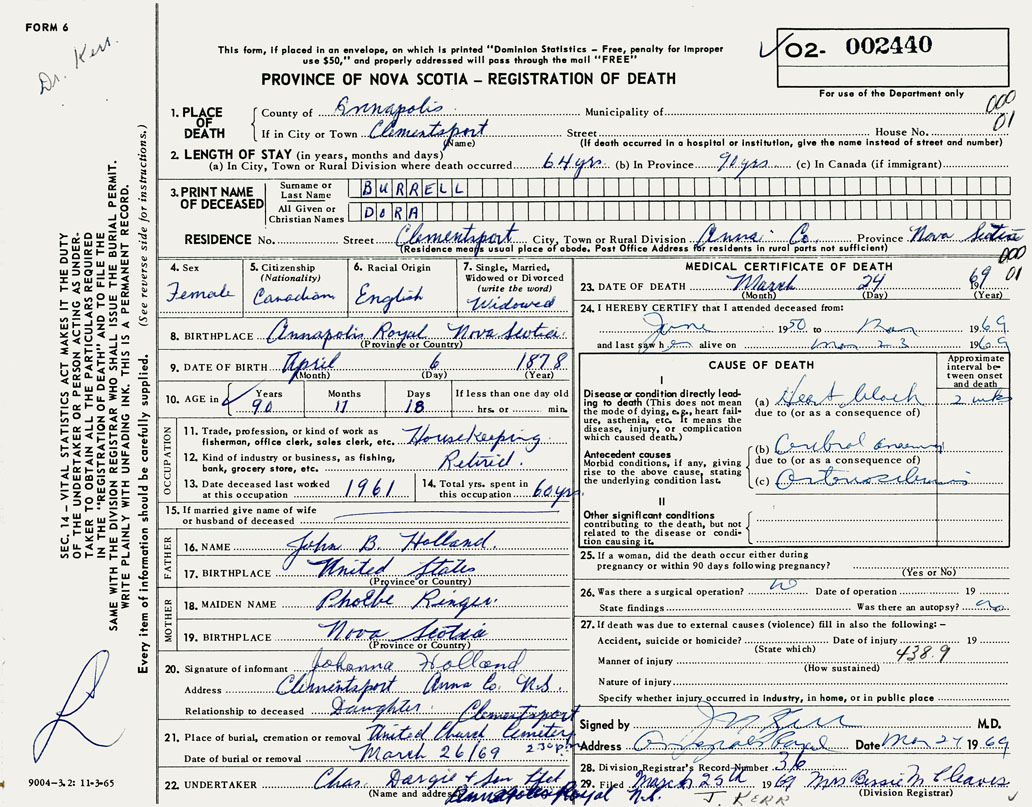 FORM 6
Dr. Kerr.
This form, if placed in an envelope, on which is printed "Dominion Statistics – Free, penalty for improper
use $50," and properly addressed will pass through the mail "FREE"
PROVINCE OF NOVA SCOTIA – REGISTRATION OF DEATH
02- 002440
For use of the Department only
000
01
1. PLACE OF DEATH
County of Annapolis Municipality of
If in City or Town Clementsport Street House No.
(Name) (If death occurred in a hospital or institution, give the name instead of street and number)
2. LENGTH OF STAY (in years, months and days)
(a) In City, Town or Rural Division where death occurred 64 yrs (b) In Province 90 yrs (c) In Canada (if immigrant)
3. PRINT NAME OF DECEASED
Surname or Last Name BURRELL
All Given or Christian Names DORA
RESIDENCE No. Street Clementsport City, Town or Rural Division Anna Co. Province Nova Scotia
(Residence means usual place of abode. Post Office Address for residents in rural parts not sufficient)
000
01
4. Sex Female
5. Citizenship (Nationality) Canadian
6. Racial Origin English
7. Single, Married, Widowed or Divorced (write the word) Widowed
8. BIRTHPLACE Annapolis Royal Nova Scotia.
(Province or Country)
9. DATE OF BIRTH April 6 1878
(Month) (Day) (Year)
10. AGE in Years 90 Months 11 Days 18 If less than one day old hrs. or min.
OCCUPATION
11. Trade, profession, or kind of work as fisherman, office clerk, sales clerk, etc. Housekeeping
12. Kind of industry or business, as fishing, bank, grocery store, etc. Retired.
13. Date deceased last worked at this occupation 1961
14. Total yrs. spent in this occupation 60 yrs
15. If married give name of wife or husband of deceased
FATHER
16. NAME John B. Holland.
17. BIRTHPLACE United States
(Province or Country)
MOTHER
18. MAIDEN NAME Phoebe Ringer.
19. BIRTHPLACE Nova Scotia
(Province or Country)
20. Signature of informant Johanna Holland
Address Clementsport Anna Co. N.S.
Relationship to deceased Daughter
Clementsport
21. Place of burial, cremation or removal United Church Cemetery
Date of burial or removal March 26/69 2:30 p.m.
22. UNDERTAKER Chas. Dargie & Son Ltd
(Name and address) Annapolis Royal N.S.
MEDICAL CERTIFICATE OF DEATH
23. DATE OF DEATH March 24 1969
(Month) (Day) (Year)
24. I HEREBY CERTIFY that I attended deceased from:
June 1950 to Mar 1969
and last saw her alive on Mar 23 1969
CAUSE OF DEATH
Approximate interval between onset and death
I
Disease or condition directly leading to death (This does not mean the mode of dying, e.g., heart failure, asthenia, etc. It means the disease, injury, or complication which caused death.)
(a) Heart block 2 wks
due to (or as a consequence of)
Antecedent causes
Morbid conditions, if any, giving rise to the above cause, stating the underlying condition last.
(b) Cerebral
due to (or as a consequence of)
(c) Arteriosclerosis
II
Other significant conditions contributing to the death, but not related to the disease or condition causing it.
25. If a woman, did the death occur either during pregnancy or within 90 days following pregnancy?
(Yes or No)
26. Was there a surgical operation? no Date of operation 19
State findings Was there an autopsy? no
27. If death was due to external causes (violence) fill in also the following: –
Accident, suicide or homicide? Date of injury 19
(State which) 438.9
Manner of injury
(How sustained)
Nature of injury
Specify whether injury occurred in industry, in home, or in public place
Signed by J Kerr M.D.
Address Annapolis Royal Date Mar 27 1969
28. Division Registrar's Record Number 36
29. Filed March 25th 1969 Mrs Bessie M Cleaves
(Division Registrar)
J. KERR
SEC. 14 – VITAL STATISTICS ACT MAKES IT THE DUTY
OF THE UNDERTAKER OR PERSON ACTING AS UNDER-
TAKER TO OBTAIN ALL THE PARTICULARS REQUIRED
IN THE "REGISTRATION OF DEATH" AND TO FILE THE
SAME WITH THE DIVISION REGISTRAR WHO SHALL ISSUE THE BURIAL PERMIT.
WRITE PLAINLY WITH UNFADING INK. THIS IS A PERMANENT RECORD.
Every item of information should be carefully supplied. (See reverse side for instructions.)
9004-3.2: 11-3-65